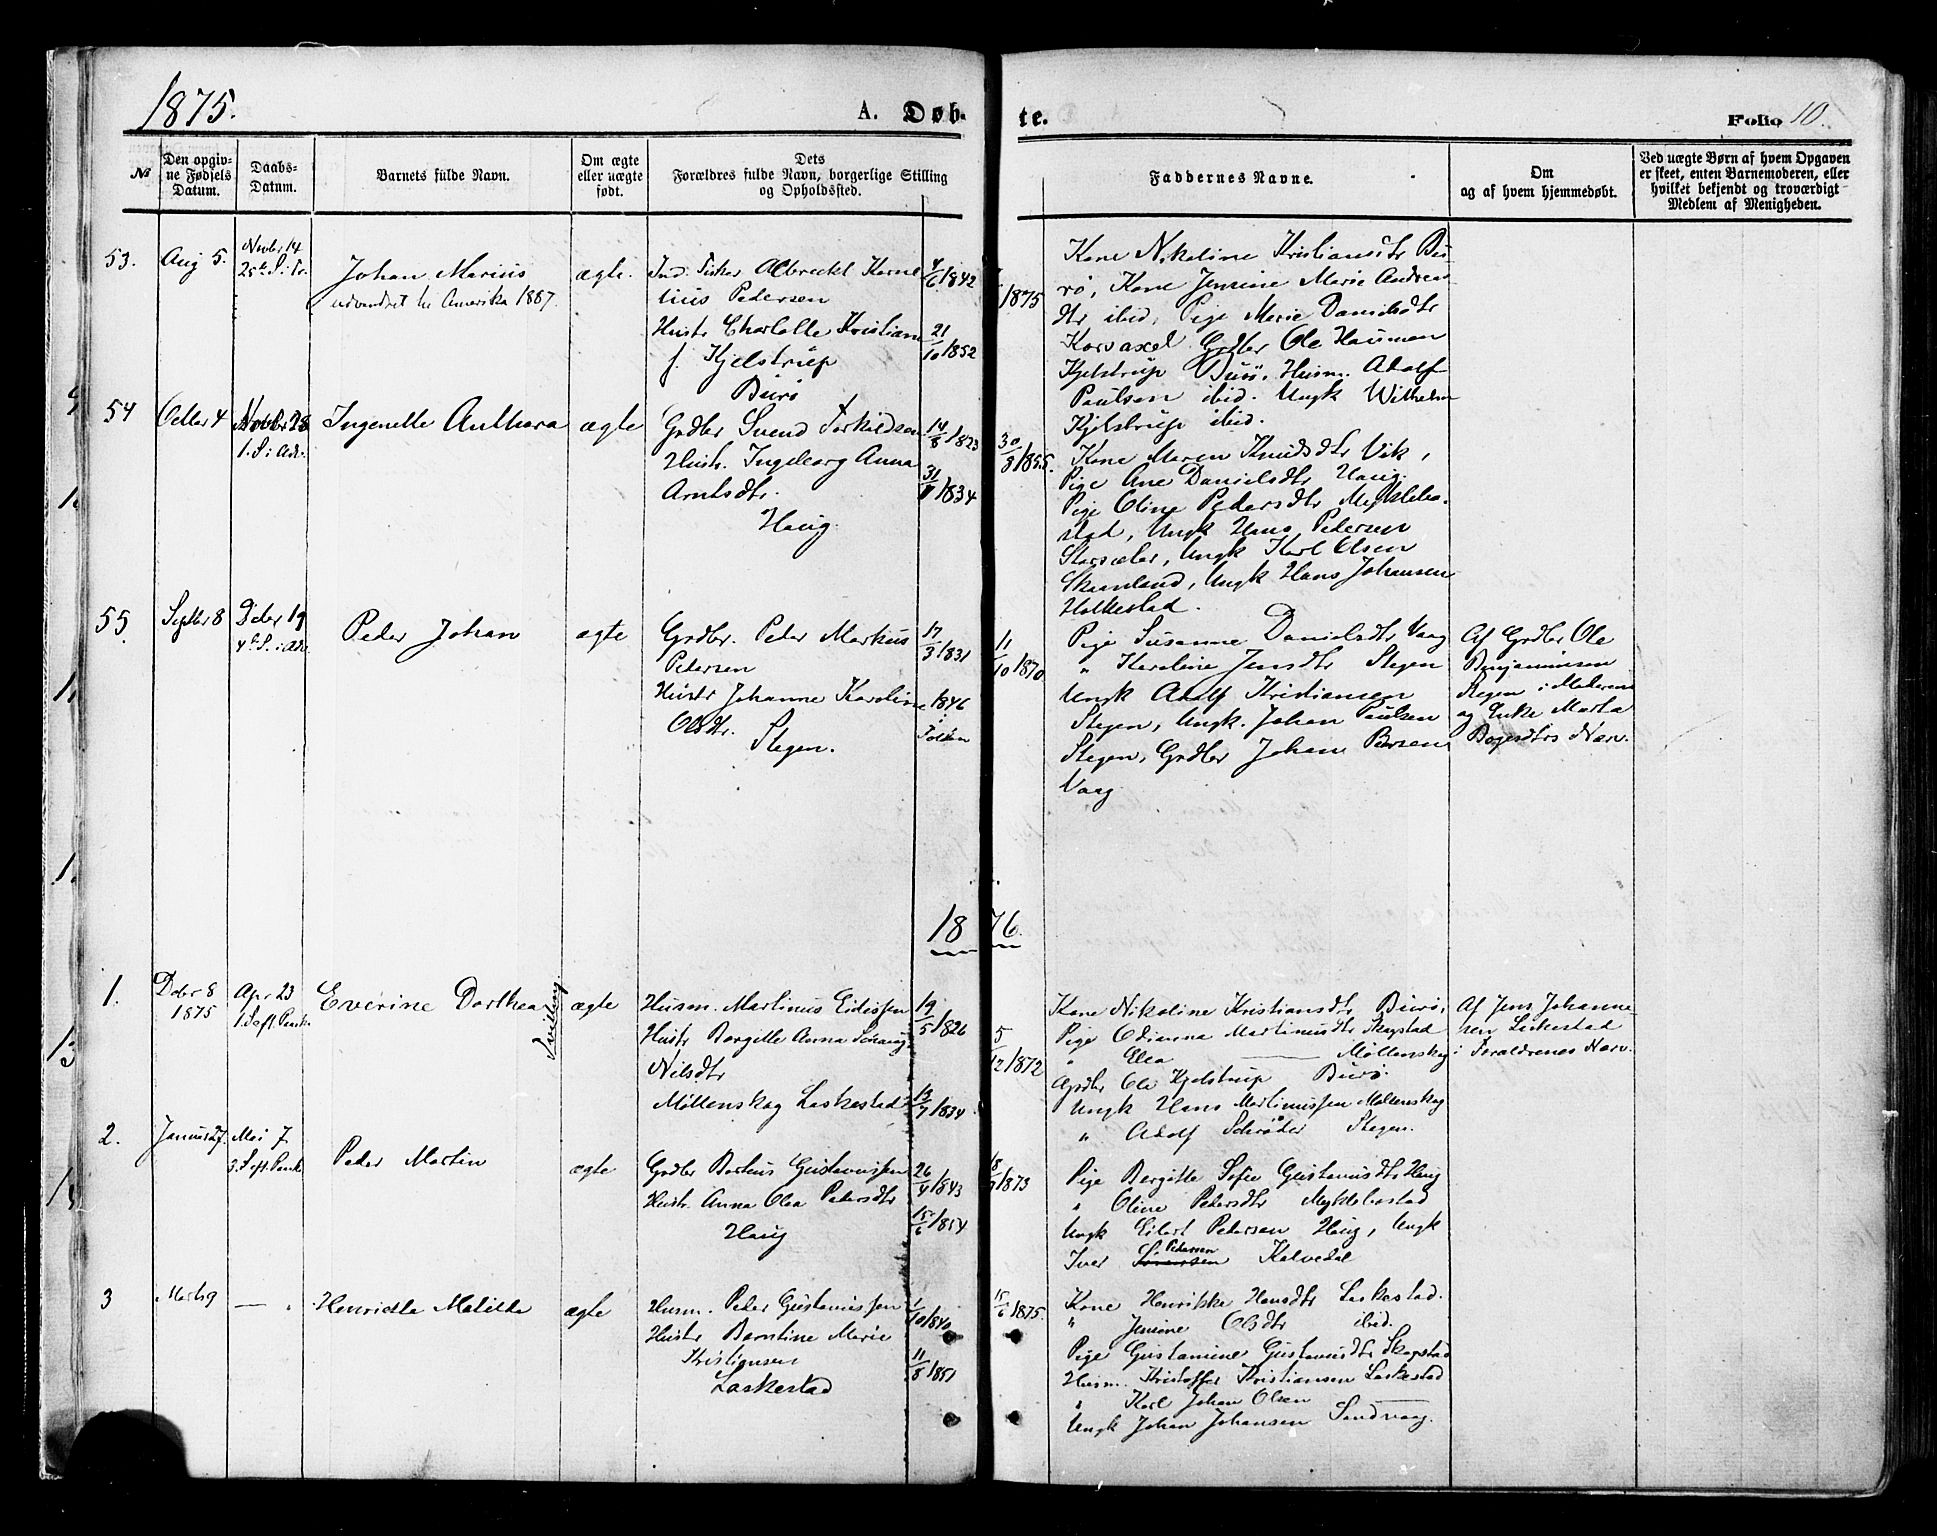 1875.
A. Døb-
te.
Folio 10.
№
Den opgiv-
ne Fødsels
Datum.
Daabs-
Datum.
Barnets fulde Navn.
Om ægte
eller uægte
født.
Dets
Forældres fulde Navn, borgerlige Stilling
og Opholdssted.
Faddernes Navne.
Om
og af hvem hjemmedøbt.
Ved uægte Børn af hvem Opgaven
er skeet, enten Barnemoderen, eller
hvilket bekjendt og troværdigt
Medlem af Menigheden.
53.
Aug 5.
Novbr 14
25de S. i Tr.
Johan Marius
udvandret til Amerika 1887.
ægte.
Ind. Fisker Albrecht Korne
lius Pedersen
Hustr Charlotte Kristian
f. Kjelstrup
Burø
4/6 1842
21/10 1852
/1875
Kone Nikoline Kristiansdtr Bu-
rø, Kone Jensine Marie Andreas
dtr ibid, Pige Marie Danielsdtr
Korsaxel Grdbr Ole Hauman
Kjelstrup Burø, Husm. Adolf
Paulsen ibid. Ungk Wilhelm
Kjelstrup ibid.
54
Octbr 4
Novbr 28
1. S. i Adv.
Ingenette Anthora
ægte
Grdbr Svend Torkildsen
Hustr. Ingeborg Anna
Arntsdtr.
Haug.
14/8 1823
31/ 1834
30/3 1855.
Kone Maren Knudsdtr Vik,
Pige Ane Danielsdtr Haug.
Pige Oline Pedersdtr Myklebo-
stad, Ungk Hans Pedersen
Ungk Karl Olsen
Skaanland, Ungk Hans Johansen
Holkestad.
55.
Septbr 8
Debr 19
4de S. i Adv.
Peder Johan
ægte
Grdbr. Peder Markus
Pedersen
Hustr Johanne Karoline
Olsdtr.
Stegen.
17/3 1831
1846
i Folden
11/10 1870
Pige Susanne Danielsdtr Vaag
" Karoline Jensdtr Stegen
Ungk Adolf Kristiansen
Stegen, Ungk. Johan Paulsen
Stegen, Grdbr Johan
Vaag
Af Grdbr Ole
Benjaminsen
Stegen i Moderens
og Enke Marta
Nærv.
1876.
1.
Debr 8
1875
Apr 23
1. S. eft. Paaske
Everine Dorthea
Tvilling
ægte
Husm. Martinus Eidissen
Hustr Bergitte Anna
Nilsdtr
Møllenskog Laskestad
19/5 1826
13/7 1834
5/12 1872
Kone Nikoline Kristiansdtr Burø,
Pige Odianna Martinusdtr Skogstad
" Elea —— Møllenskog
Grdbr Ole Kjelstrup Burø.
Ungk Hans Martinussen Møllenskog
" Adolf Schrøder Stegen.
Af Jens Johanne-
sen Laskestad
i Forældrenes Nærv.
2.
Januar 27.
Mai 7
3. S. eft. Paaske
Peder Martin
ægte
Grdbr Gustavussen
Hustr. Anna Olea Pedersdtr
Haug
26/4 1843
15/6 1854
18/ 1873
Pige Bergitte Sofie Gustavusdtr Haug
" Oline Pedersdtr Myklebostad
Ungk Eilert Pedersen Haug, Ungk
Iver Pedersen Kalvedal
3
Marts 9
— "
Henriette Matilde
ægte
Husm. Peder Gustavussen
Hustr Berntine Marie
Kristiansen
Laskestad
1/10 1840
11/8 1851
15/6 1875.
Kone Henrikke Hansdtr Laskestad.
" Jensine Olsdtr ibid.
Pige Gustavine Gustavusdtr Skogstad
Husm. Kristoffer Kristiansen Laskestad
" Karl Johan Olsen ——
Ungk Johan Johansen Sandvaag.